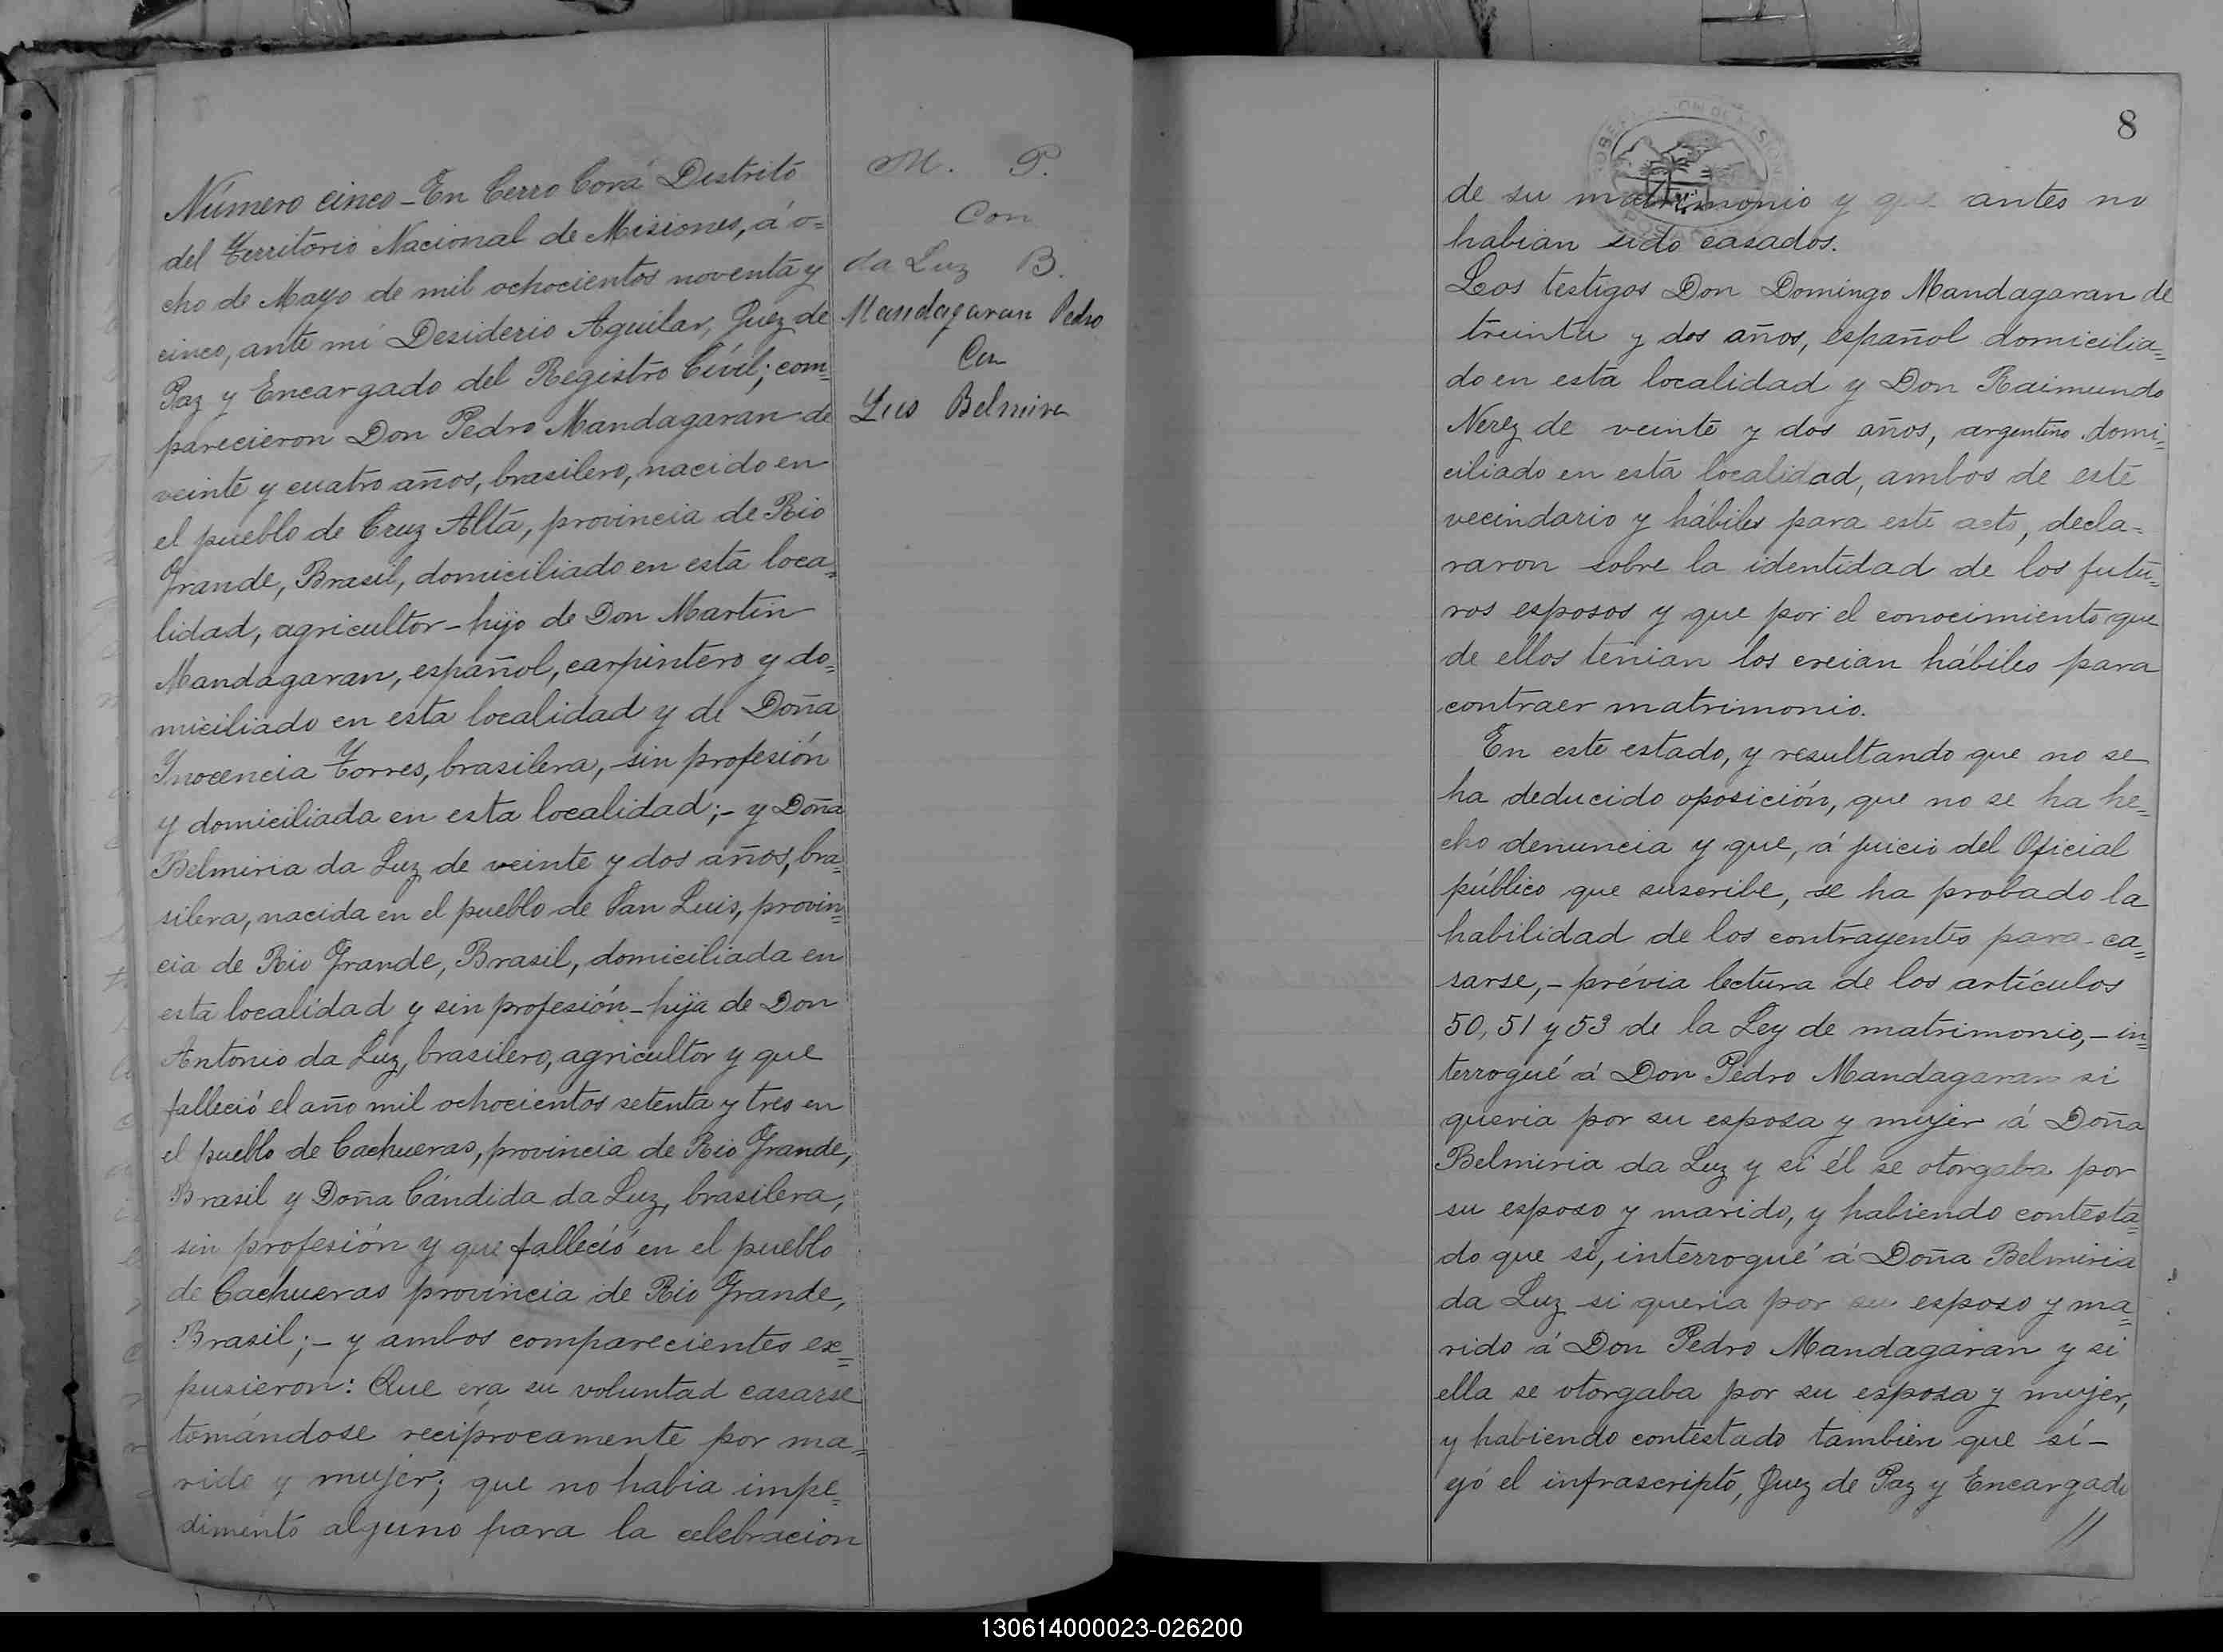 Número cinco - En Cerro Corá Distrito
del Territorio Nacional de Misiones, á o=
cho de Mayo de mil ochocientos noventa y
cinco, ante mí Desiderio Aguilar, Juez de
Paz y Encargado del Registro Civil; com=
parecieron Don Pedro Mandagaran de
veinte y cuatro años, brasilero, nacido en
el pueblo de Cruz Alta, provincia de Rio
Grande, Brasil, domiciliado en esta loca=
lidad, agricultor - hijo de Don Martin
Mandagaran, español, carpintero y do=
miciliado en esta localidad y de Doña
Inocencia Torres, brasilera, sin profesión
y domiciliada en esta localidad; - y Doña
Belmiria da Luz de veinte y dos años, bra=
silera, nacida en el pueblo de San Luis, provin=
cia de Rio Grande, Brasil, domiciliada en
esta localidad y sin profesión - hija de Don
Antonio da Luz, brasilero, agricultor y que
falleció el año mil ochocientos setenta y tres en
el pueblo de Cachueras, provincia de Rio Grande,
Brasil y Doña Cándida da Luz, brasilera,
sin profesión y que falleció en el pueblo
de Cachueras provincia de Rio Grande,
Brasil; - y ambos comparecientes ex=
pusieron: Que era su voluntad casarse
tomándose reciprocamente por ma=
rido y mujer; que no habia impe=
dimento alguno para la celebracion
M. P.
Con
da Luz B.
Mandagaran Pedro
Con
Lus Belmira
8
de su matrimonio y que antes no
habian sido casados.
Los testigos Don Domingo Mandagaran de
treinta y dos años, español domicilia=
do en esta localidad y Don Raimundo
Nerez de veinte y dos años, argentino domi=
ciliado en esta localidad, ambos de este
vecindario y hábiles para este acto, decla=
raron sobre la identidad de los futu=
ros esposos y que por el conocimiento que
de ellos tenian los creian hábiles para
contraer matrimonio.
En este estado, y resultando que no se
ha deducido oposición, que no se ha he=
cho denuncia y que, á juicio del Oficial
público que suscribe, se ha probado la
habilidad de los contrayentes para ca=
sarse, - prévia lectura de los artículos
50, 51 y 53 de la Ley de matrimonio, - in=
terrogué á Don Pedro Mandagaran si
queria por su esposa y mujer á Doña
Belmiria da Luz y si él se otorgaba por
su esposo y marido, y habiendo contesta=
do que sí, interrogué á Doña Belmiria
da Luz si queria por su esposo y ma=
rido á Don Pedro Mandagaran y si
ella se otorgaba por su esposa y mujer,
y habiendo contestado tambien que sí -
yó el infrascripto, Juez de Paz y Encargado
//
130614000023-026200